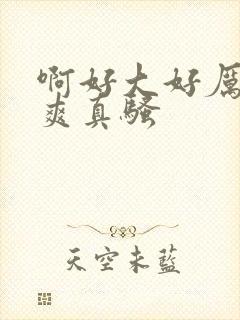 啊好大好厉
爽真骚
天空未蓝